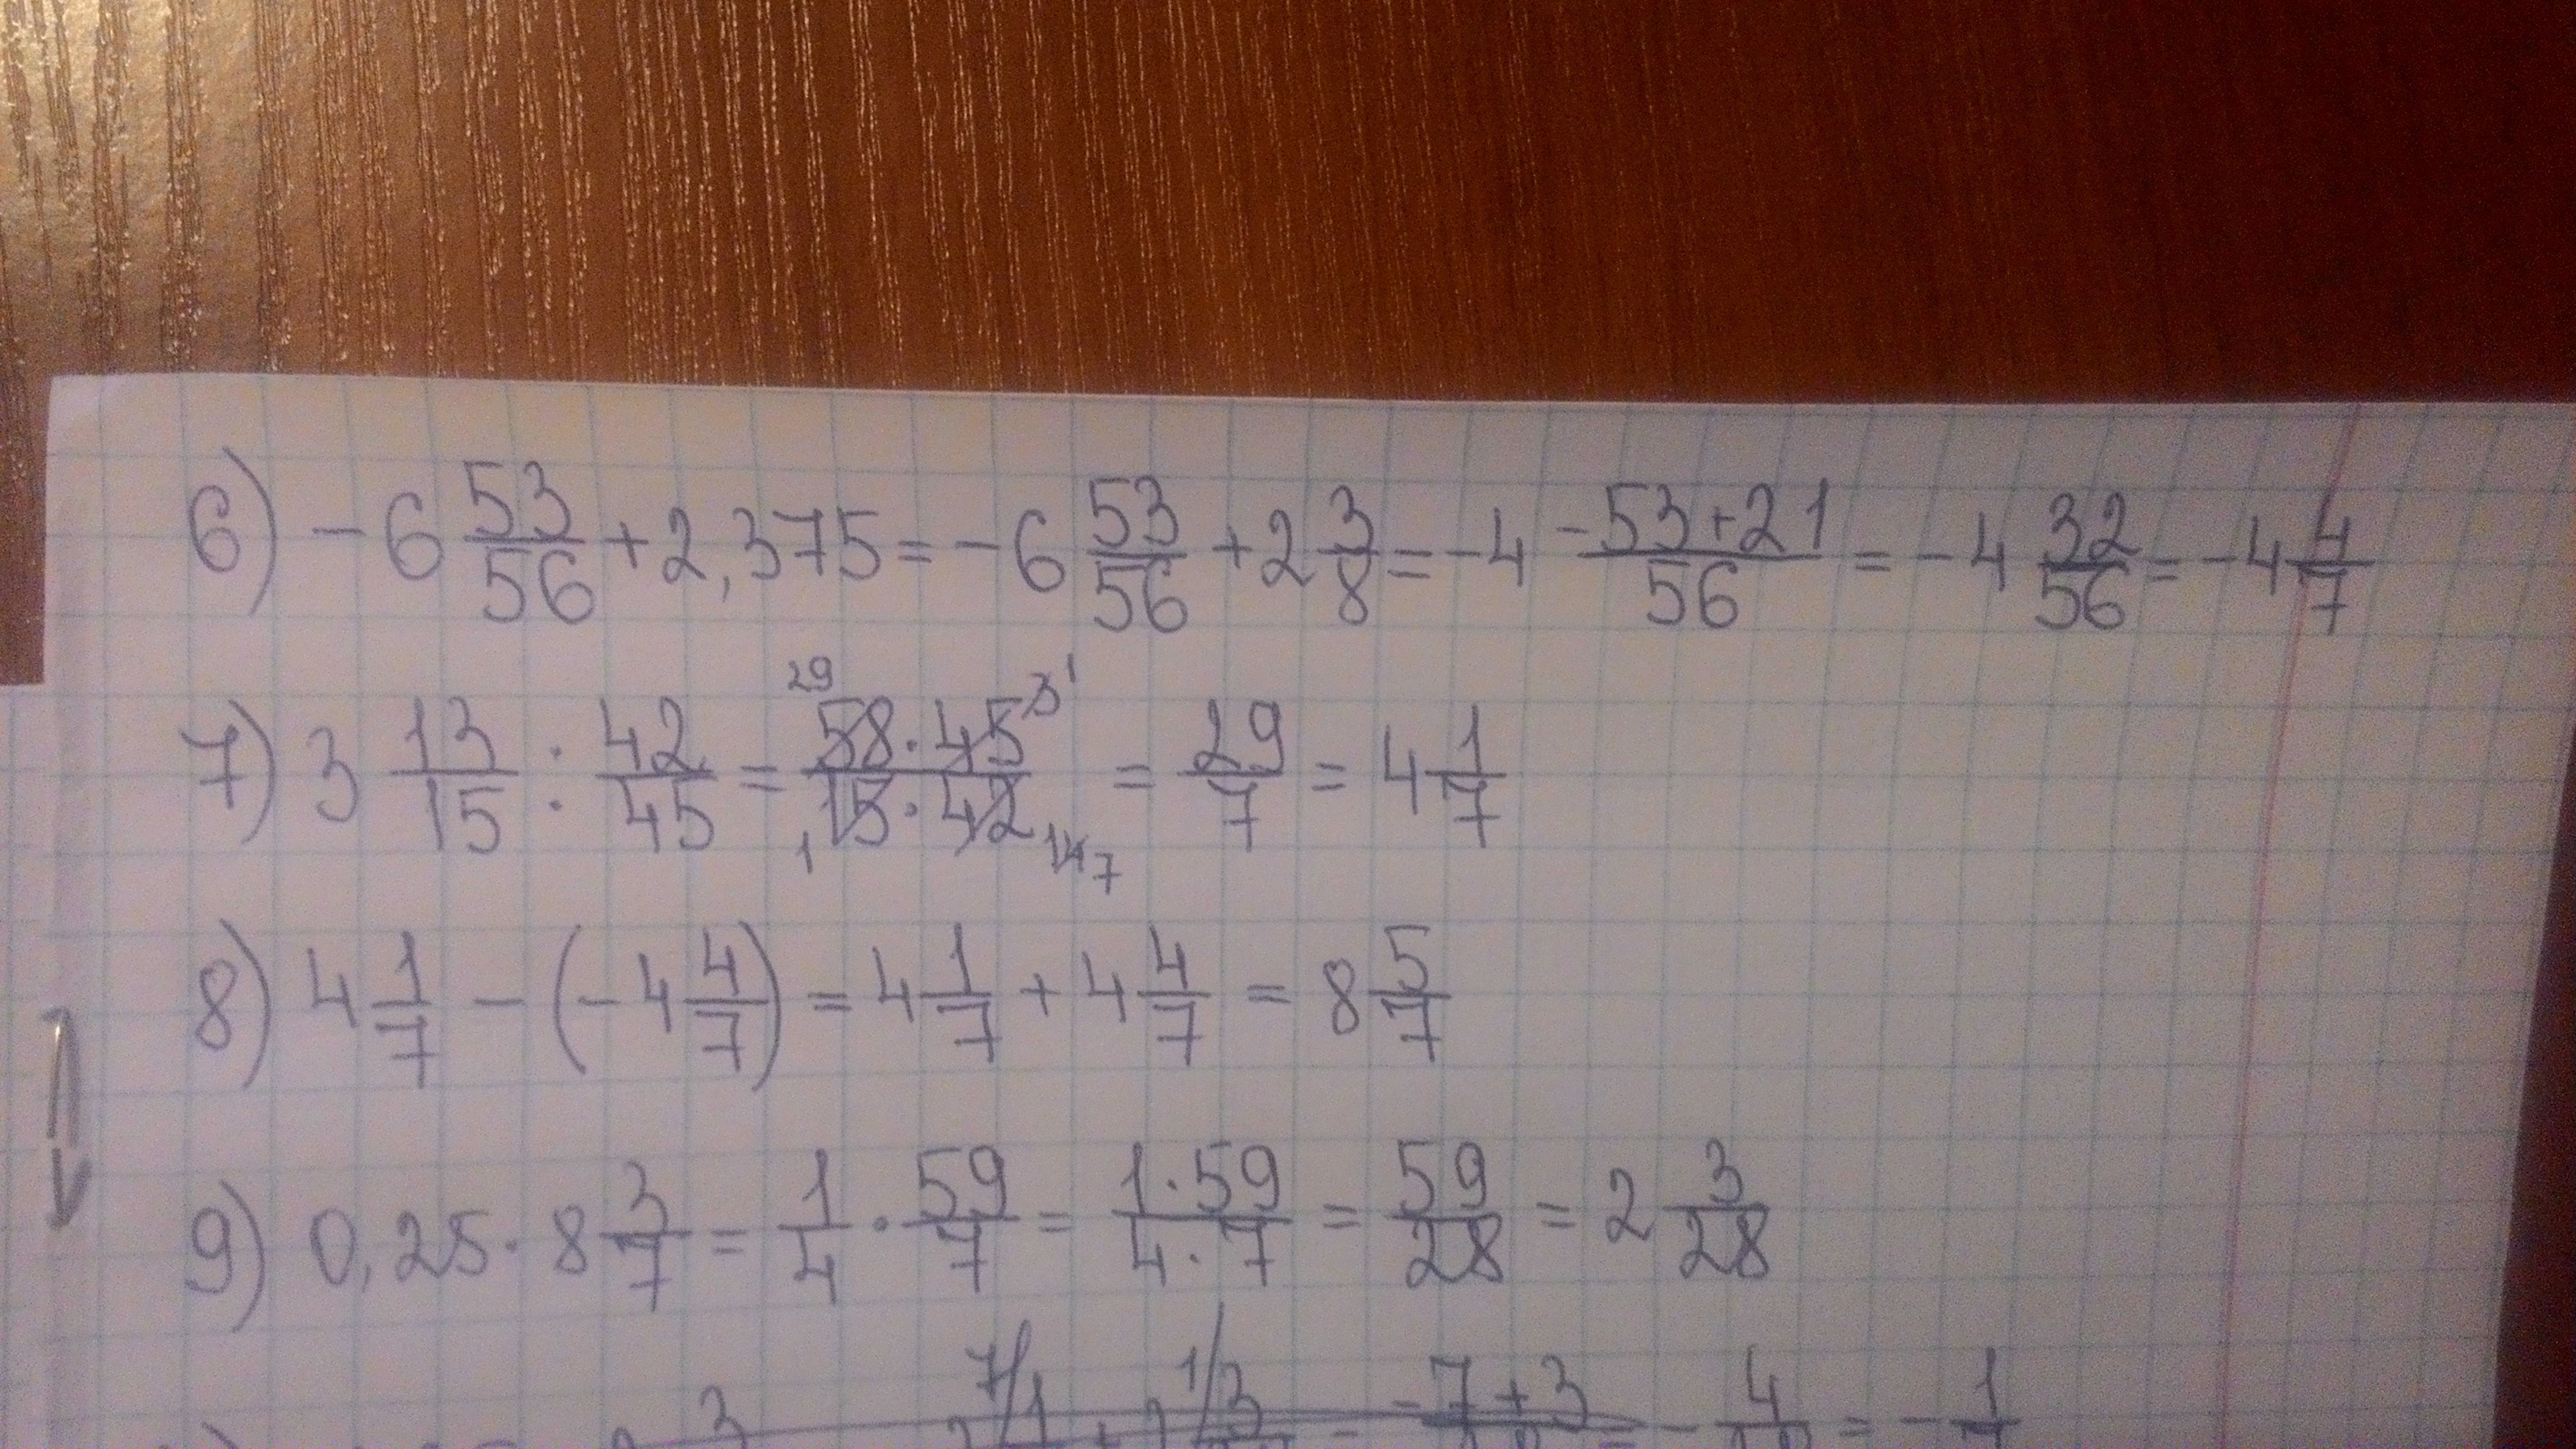 6) -6 53/56 + 2,375 = -6 53/56 + 2 3/8 = -4 (-53+21)/56 = -4 32/56 = -4 4/7
7) 3 13/15 : 42/45 = 29 58·45 3 1 / 1 15·42 14 7 = 29/7 = 4 1/7
8) 4 1/7 - (-4 4/7) = 4 1/7 + 4 4/7 = 8 5/7
9) 0,25 · 8 3/7 = 1/4 · 59/7 = (1·59)/(4·7) = 59/28 = 2 3/28